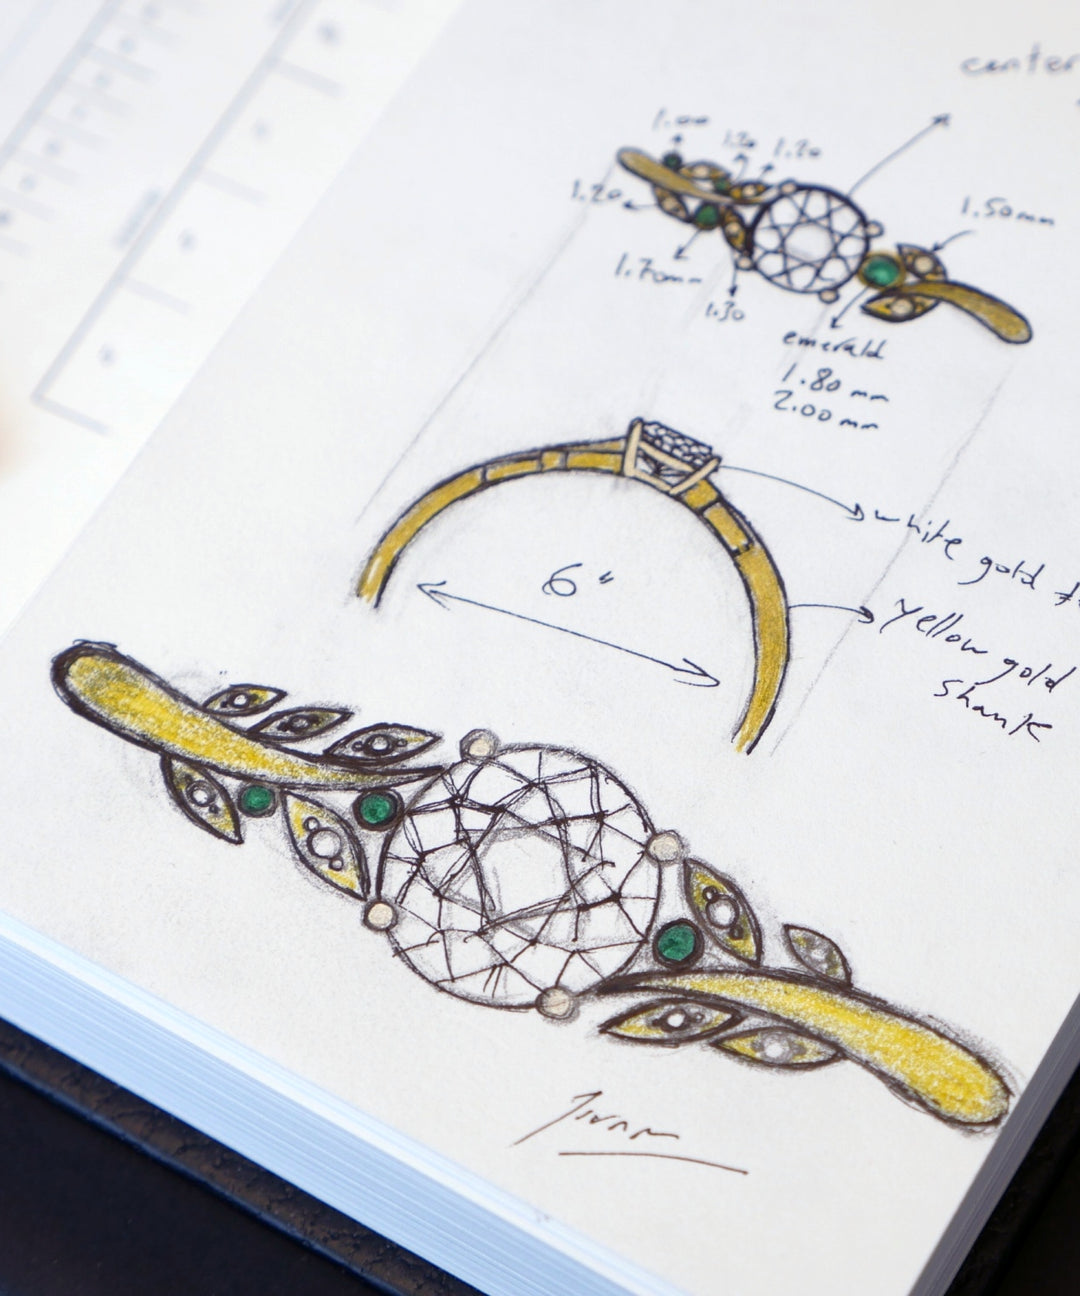 center
1.00
1.20
1.20
1.20
1.50mm
1.70mm
1.30
emerald
1.80 mm
2.00 mm
6"
white gold
yellow gold
shank